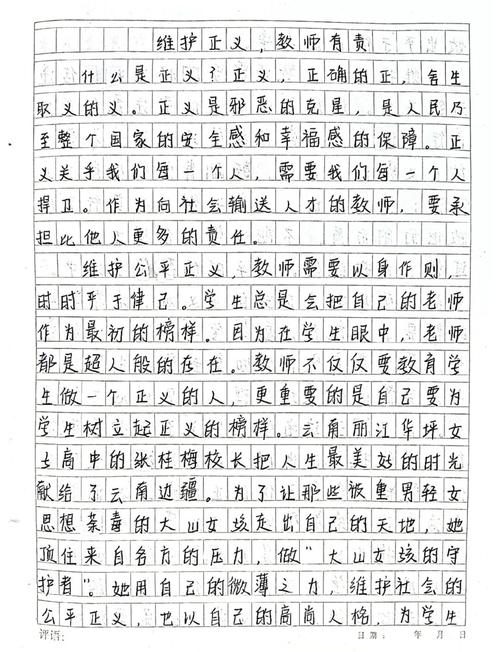 维护正义,教师有责
什么是正义?正义,正确的正,舍生
取义的义。正义是邪恶的克星,是人民乃
至整个国家的安全感和幸福感的保障。正
义关乎我们每一个人,需要我们每一个人
捍卫。作为向社会输送人才的教师,要承
担比他人更多的责任。
维护公平正义,教师需要以身作则,
时时严于律己。学生总是会把自己的老师
作为最初的榜样。因为在学生眼中,老师
都是超人般的存在。教师不仅仅要教育学
生做一个正义的人,更重要的是自己要为
学生树立起正义的榜样。云南丽江华坪女
子高中的张桂梅校长把人生最美好的时光
献给了云南边疆。为了让那些被重男轻女
思想荼毒的大山女孩走出自己的天地,她
顶住来自各方的压力,做“大山女孩的守
护者”。她用自己的微薄之力,维护社会的
公平正义,也以自己的高尚人格,为学生
评语: 日期: 年 月 日